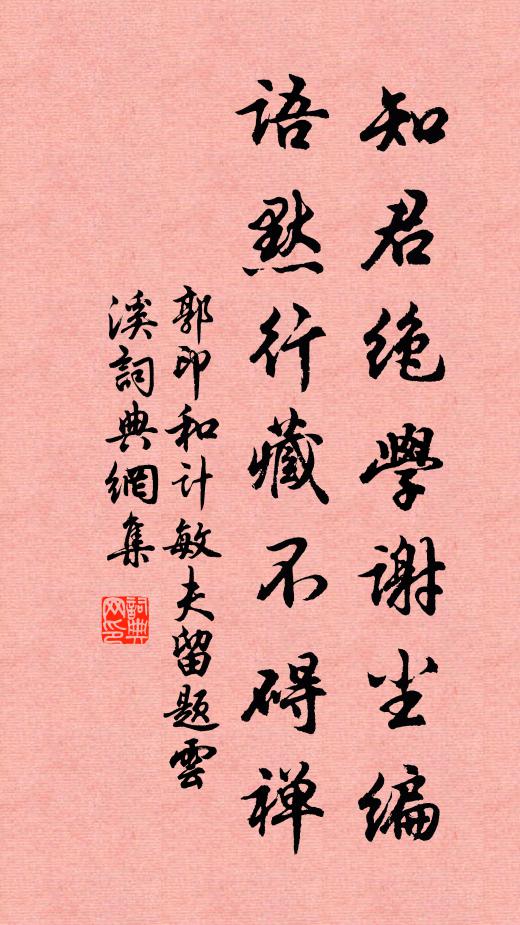 知君绝學谢尘编
語默行藏不碍禅
郭印和计敏夫留题雲
溪詞典網集
詞典网印